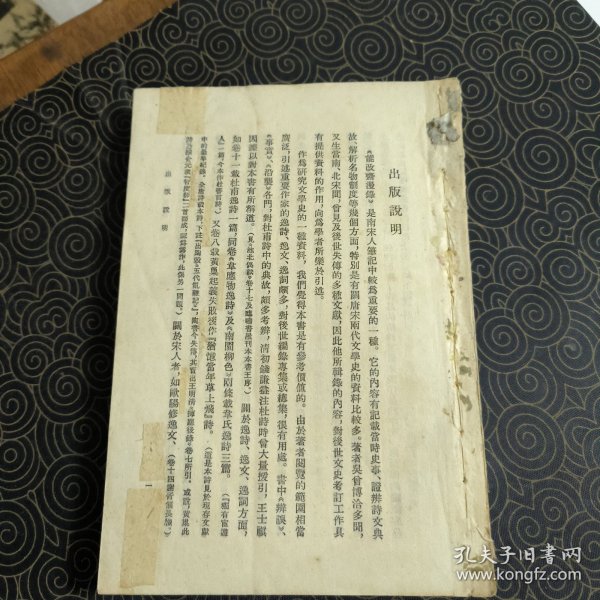 出版說明
《能改齋漫錄》是南宋人筆記中較爲重要的一種。它的內容有記載當時史事、證辨詩文典
故、解析名物制度等幾個方面,特別是有關唐宋兩代文學史的資料比較多。著者吳曾博洽多聞,
又生當南、北宋間,曾見及後世失傳的多種文獻,因此他所輯錄的內容,對後世文史考訂工作具
有提供資料的作用,向爲學者所樂於引述。
作爲研究文學史的一種資料,我們覺得本書是有參考價值的。由於著者閱覽的範圍相當
廣泛,引述重要作家的逸詩、逸文、逸詞頗多,對後世編錄專集或總集,很有用處。書中《辨誤》、
《事實》、《沿襲》各門,對杜甫詩中的典故,頗多考辨,清初錢謙益注杜詩時曾大量援引,王士禛
因譚以對本書有所稱道。關於逸詩、逸文、逸詞方面,
如卷十一載杜甫逸詩一篇,同卷《韋應物逸詩》及《南園柳色》兩條載韋氏逸詩三篇。
又卷八載黃巢起義失敗後作『猶憶當年草上飛』詩。
關於宋人者,如歐陽修逸文、
出版說明
一
孔夫子旧书网
www.kongfz.com